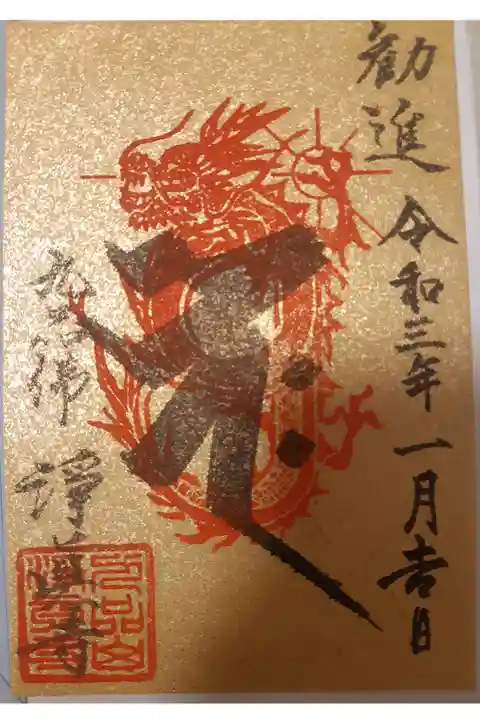 勧進 令和三年一月吉日
九品佛
淨真寺